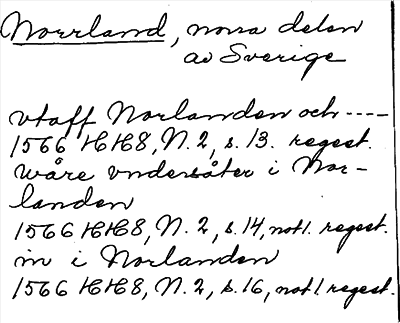 Norrland, norra delen
av Sverige
vtaff Norlanden och ----
1566 HH8, N. 2, s. 13. regest.
wåre vndersåter i Nor-
landen
1566 HH8, N. 2, s. 14, not 1. regest.
in i Norlanden
1566 HH8, N. 2, s. 16, not 1 regest.